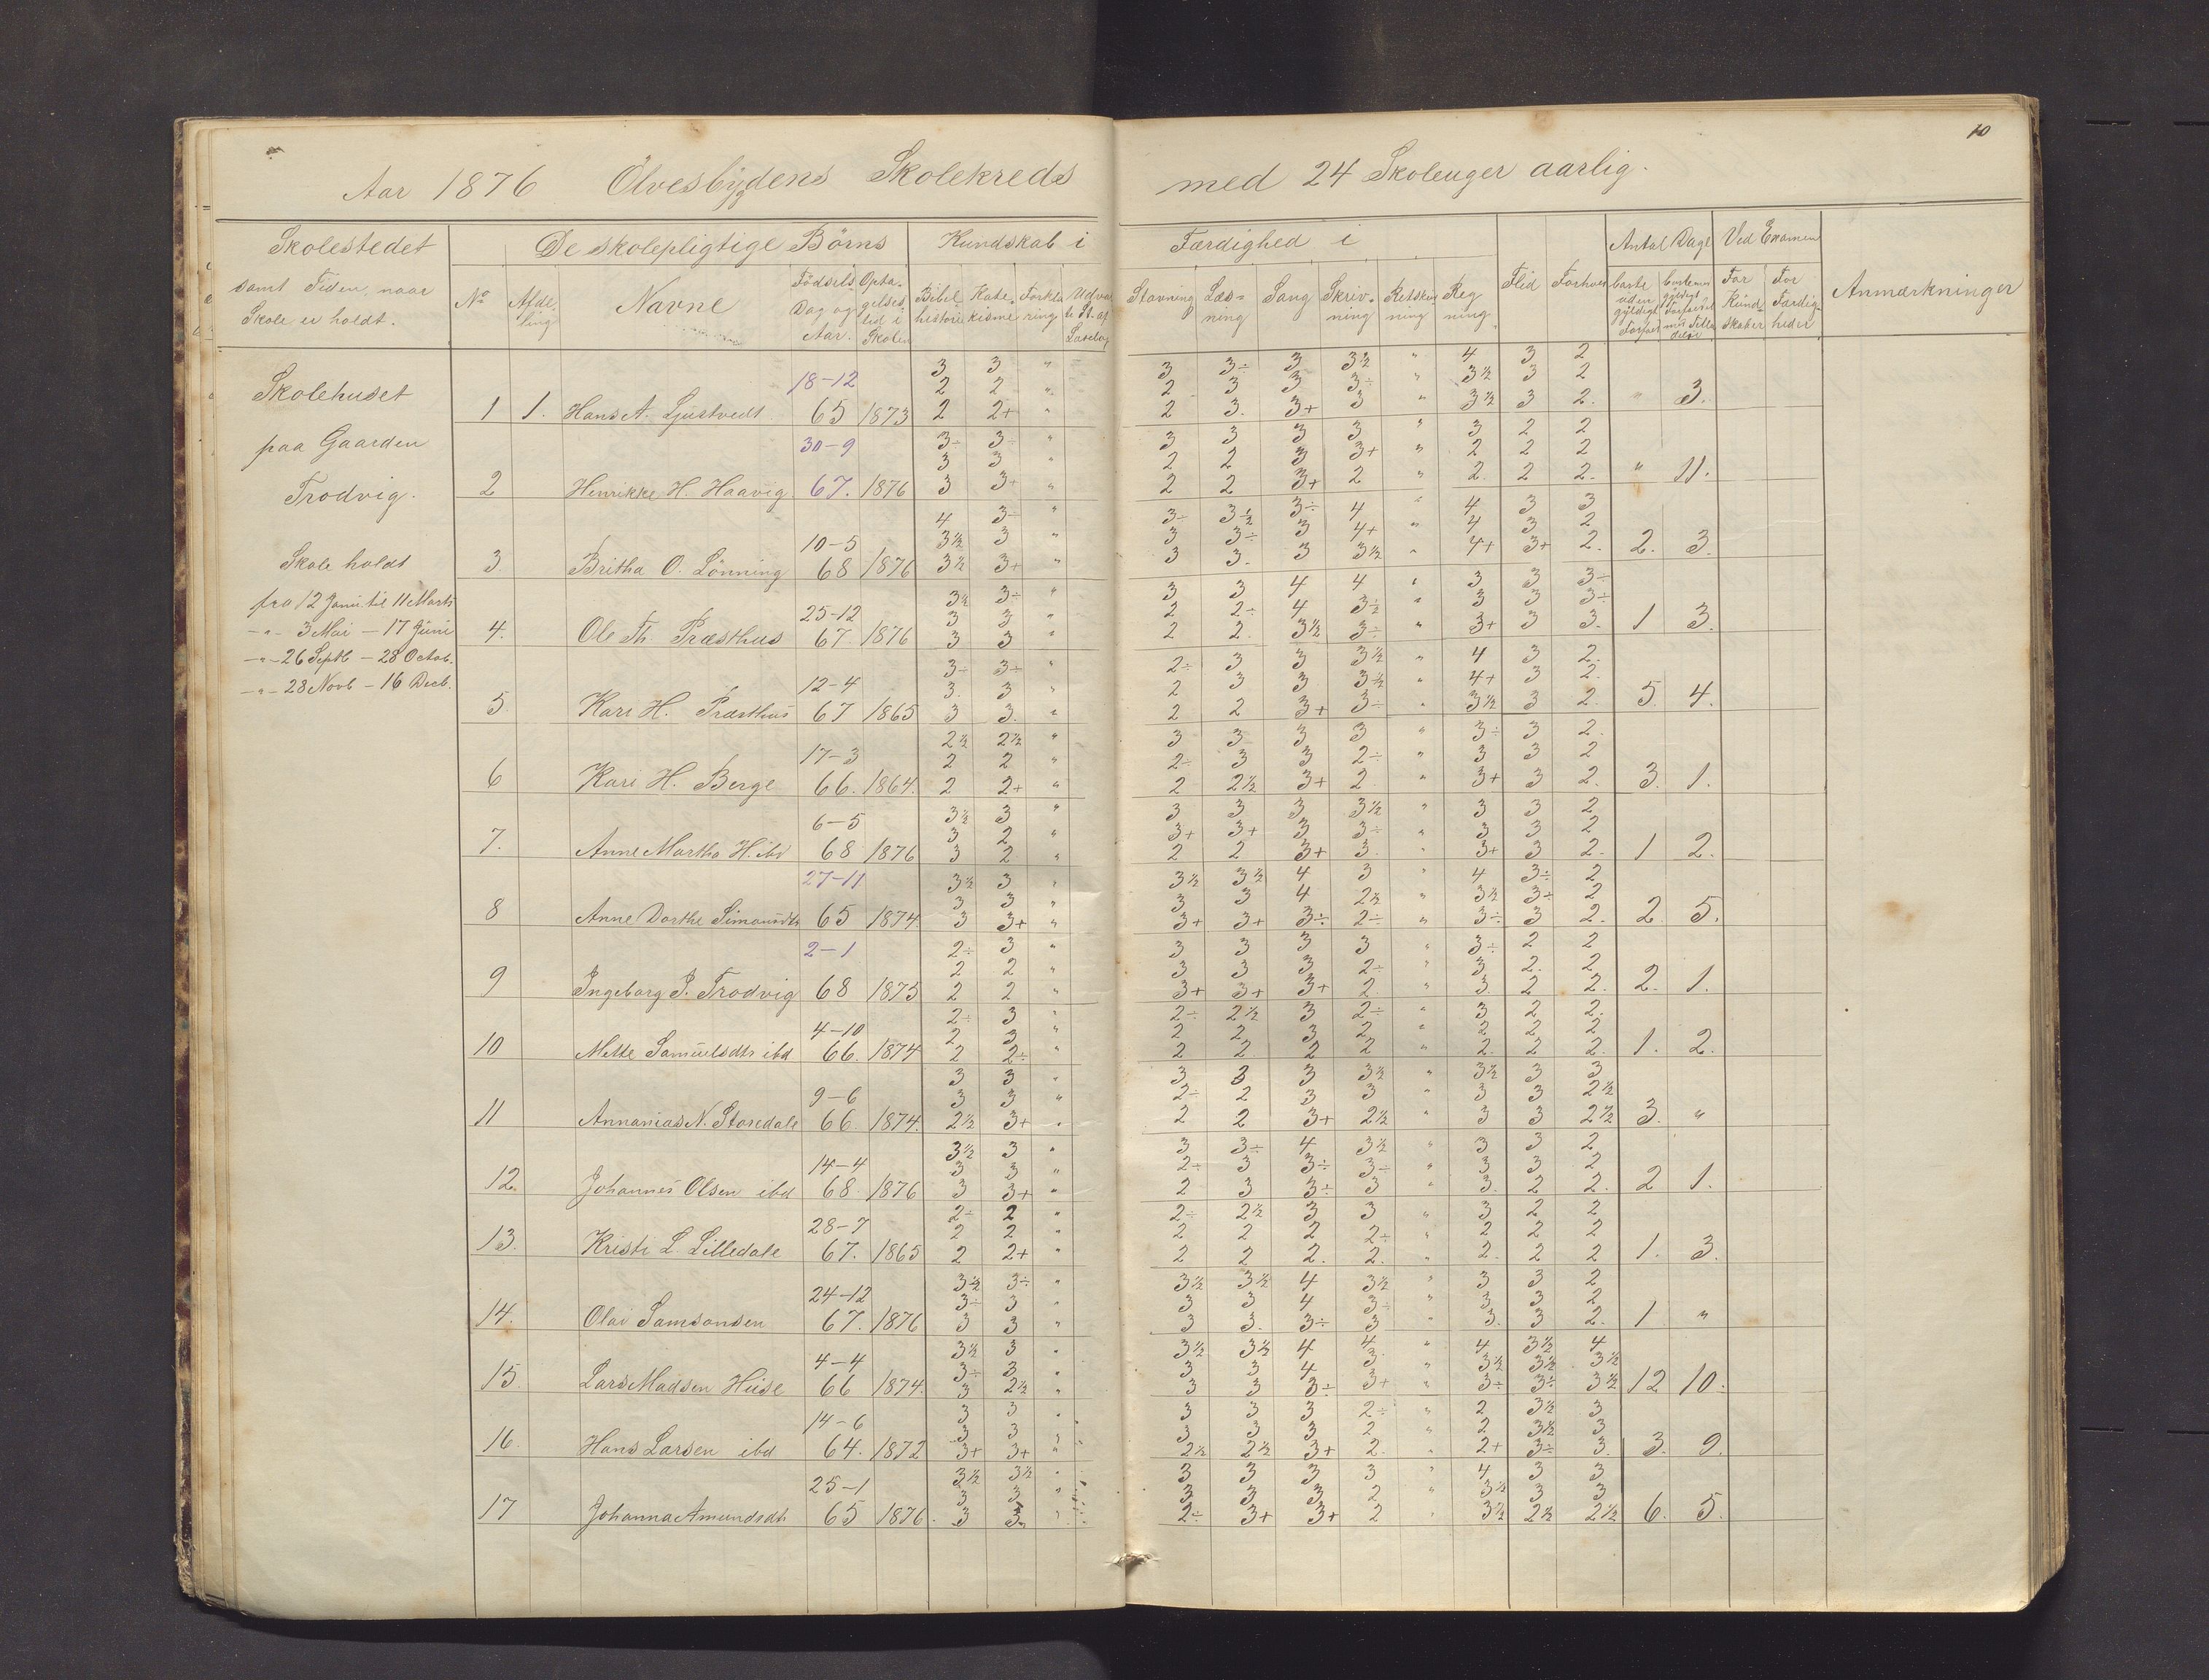 10
Aar 1876 Ölvesbygdens Skolekreds med 24 Skoleuger aarlig.
Skolestedet
samt Tiden, naar
Skole er holdt.
De skolepligtige Börns
No
Afdeling
Navne
Födsels Dag og Aar.
Optagelsestid i Skolen
Kundskab i
Bibelhistorie
Katekisme
Forklaring
Udvalgte St. af Læsebog
Færdighed i
Stavning
Læsning
Sang
Skrivning
Retskrivning
Regning
Flid
Forhold
Antal Dage
borte uden gyldigt Forfald
Ved Examen
For Kundskaber
For Færdigheder
Anmærkninger
Skolehuset
paa Gaarden
Trodvig.
Skole holdt
fra 12 Janu. til 11 Marts
-"- 3 Mai - 17 Juni
-"- 26 Septb - 28 Octob.
-"- 28 Novb - 16 Decb.
3 3 " 3 3÷ 3 3½ " 4 3 2
18-12 2 2 " 2 3 3 3÷ " 3½ 3 2
1 1. Hans A. Ljustvedt 65 1873 2 2+ " 2 3. 3+ 3 " 3½ 3 2. " 3.
30-9 3÷ 3÷ " 3 3 3 3 " 3 2 2
3 3 " 2 2 3 3+ " 2 2 2
2 Henrikke H. Haavig 67. 1876 3 3+ " 2 2 3+ 2 " 2. 2 2. " 11.
4 3÷ " 3÷ 3½ 3÷ 4 " 4 3 3
10-5 3½ 3 " 3 3÷ 3 4+ " 4 3 2
3 Britha O. Lönning 68 1876 3½ 3+ " 3 3. 3 3½ " 4+ 3+ 2. 2. 3.
3½ 3÷ " 3 3 4 4 " 3 3 3÷
25-12 3 3 " 2 2÷ 4 3½ " 3 3 3÷
4. Ole Th. Præsthus 67 1876 3 3 " 2 2. 3½ 3÷ " 3+ 3 3. 1 3.
3÷ 3÷ " 2÷ 3 3 3½ " 4 3 2.
12-4 3. 3 " 2 3 3 3½ " 4+ 3 2.
5 Kari H. Præsthus 67 1865 3 3. " 2 2 3+ 3÷ " 3½ 3 2. 5. 4.
2½ 2½ " 3 3 3 3 " 3÷ 3 2.
17-3 2 2 " 2÷ 3 3 2÷ " 3 3 2
6 Kari H. Berge 66. 1864. 2 2+ " 2 2½ 3+ 2. " 3+ 3 2. 3. 1.
3½ 3 " 3 3 3 3½ " 3 3 2
6-5 3 2 " 3+ 3+ 3 3÷ " 3 3 2
7. Anne Martha H. ibd 68 1876 3 2 " 2 2 3+ 3. " 3+ 3 2. 1 2.
27-11 3½ 3 " 3½ 3½ 4 3 " 4 3÷ 2
3 3 " 3 3 4 2½ " 3½ 3÷ 2
8 Anne Dorthe Simonsdtr 65 1874. 3 3+ " 3+ 3+ 3÷ 2÷ " 3÷ 3 2. 2. 5.
2-1 2÷ 3 " 3 3 3 3 " 3÷ 2 2
2 2 " 3 3 3 2÷ " 3 2. 2
9 Ingeborg J. Trodvig 68 1875 2 2 " 3+ 3+ 3+ 2 " 3. 2 2. 2. 1.
2÷ 3 " 2÷ 2½ 3 2÷ " 3 2 2.
4-10 2 3 " 2 2 3 2 " 2 2 2
10 Mette Samuelsdtr ibd 66. 1874 2 2÷ " 2 2 2 2 " 2. 2 2. 1. 2.
3 3 " 3 3 3 3½ " 3½ 3 3
9-6 3 3 " 2÷ 2 3 3 " 3 3 2½
11 Annanias N. Storedale 66. 1874. 2½ 3+ " 2 2 3+ 2½ " 3 3 2½ 3. "
3½ 3 " 3 3÷ 4 3½ " 3 3 2
14-4 3 3 " 2÷ 3 3÷ 3÷ " 3 3 2
12. Johannes Olsen ibd 68. 1876 3 3+ " 2 3 3÷ 3 " 3. 2 2. 2 1.
2÷ 2 " 2÷ 2½ 3 3 " 3 2 2
28-7 2 2 " 2 2 2 2÷ " 2 2 2
13. Kristi L. Lilledale 67. 1865 2 2+ " 2 2 2. 2. " 2. 2 2 1. 3.
3½ 3÷ " 3½ 3½ 4 3½ " 3 3 2
24-12 3÷ 3 " 3 3 4 3÷ " 3 3 2
14. Olai Samsonsen 67. 1876 3 3 " 3 3. 3÷ 3 " 3. 3 2. 1 "
3½ 3 " 3½ 3½ 4 4 " 4 3½ 4
4-4 3÷ 3 " 3 3 4 3. " 3½ 3½ 3½
15. Lars Madsen Huse 66 1874. 3 2½ " 3 3 3÷ 3+ " 3÷ 3÷ 3½ 12 10.
3 3 " 3 3 3 2÷ " 2 3½ 3
14-6 3 3 " 3 3 3 2 " 2 3½ 3
16. Hans Larsen ibd 64. 1872 3+ 3+ " 2½ 2½ 3+ 2. " 2+ 3÷ 3. 3. 9.
3½ 3½ " 3 3 3 3 " 4 3 3
25-1 3 3 " 3 3 3 2 " 3½ 3 3
17 Johanna Amundsdtr 65 1876. 3 3 " 2÷ 3+ 3+ 2 " 3½ 2½ 2½ 6. 5.